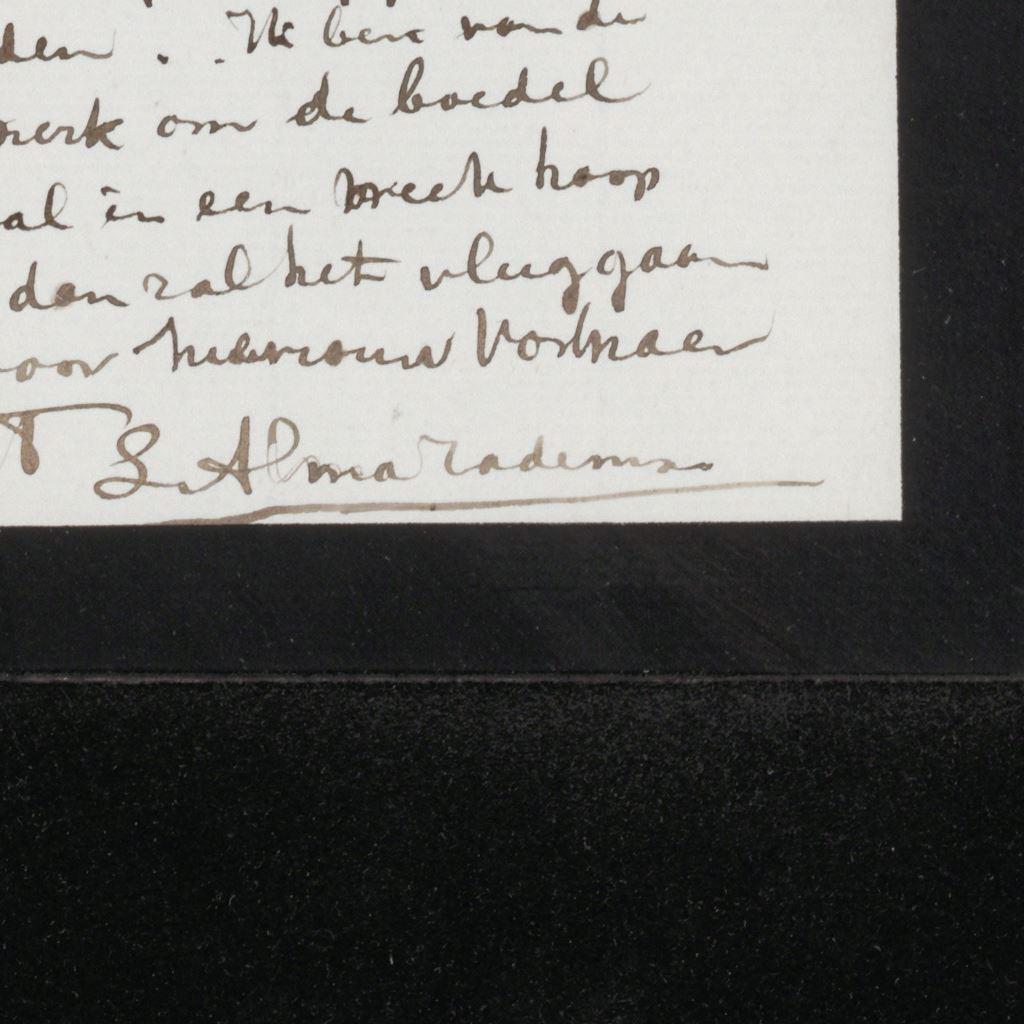 den . . Ik ben van de
werk om de boedel
al in een week hoop
dan zal het vlug gaan
voor mevrouw Vosmaer
L. Alma Tadema